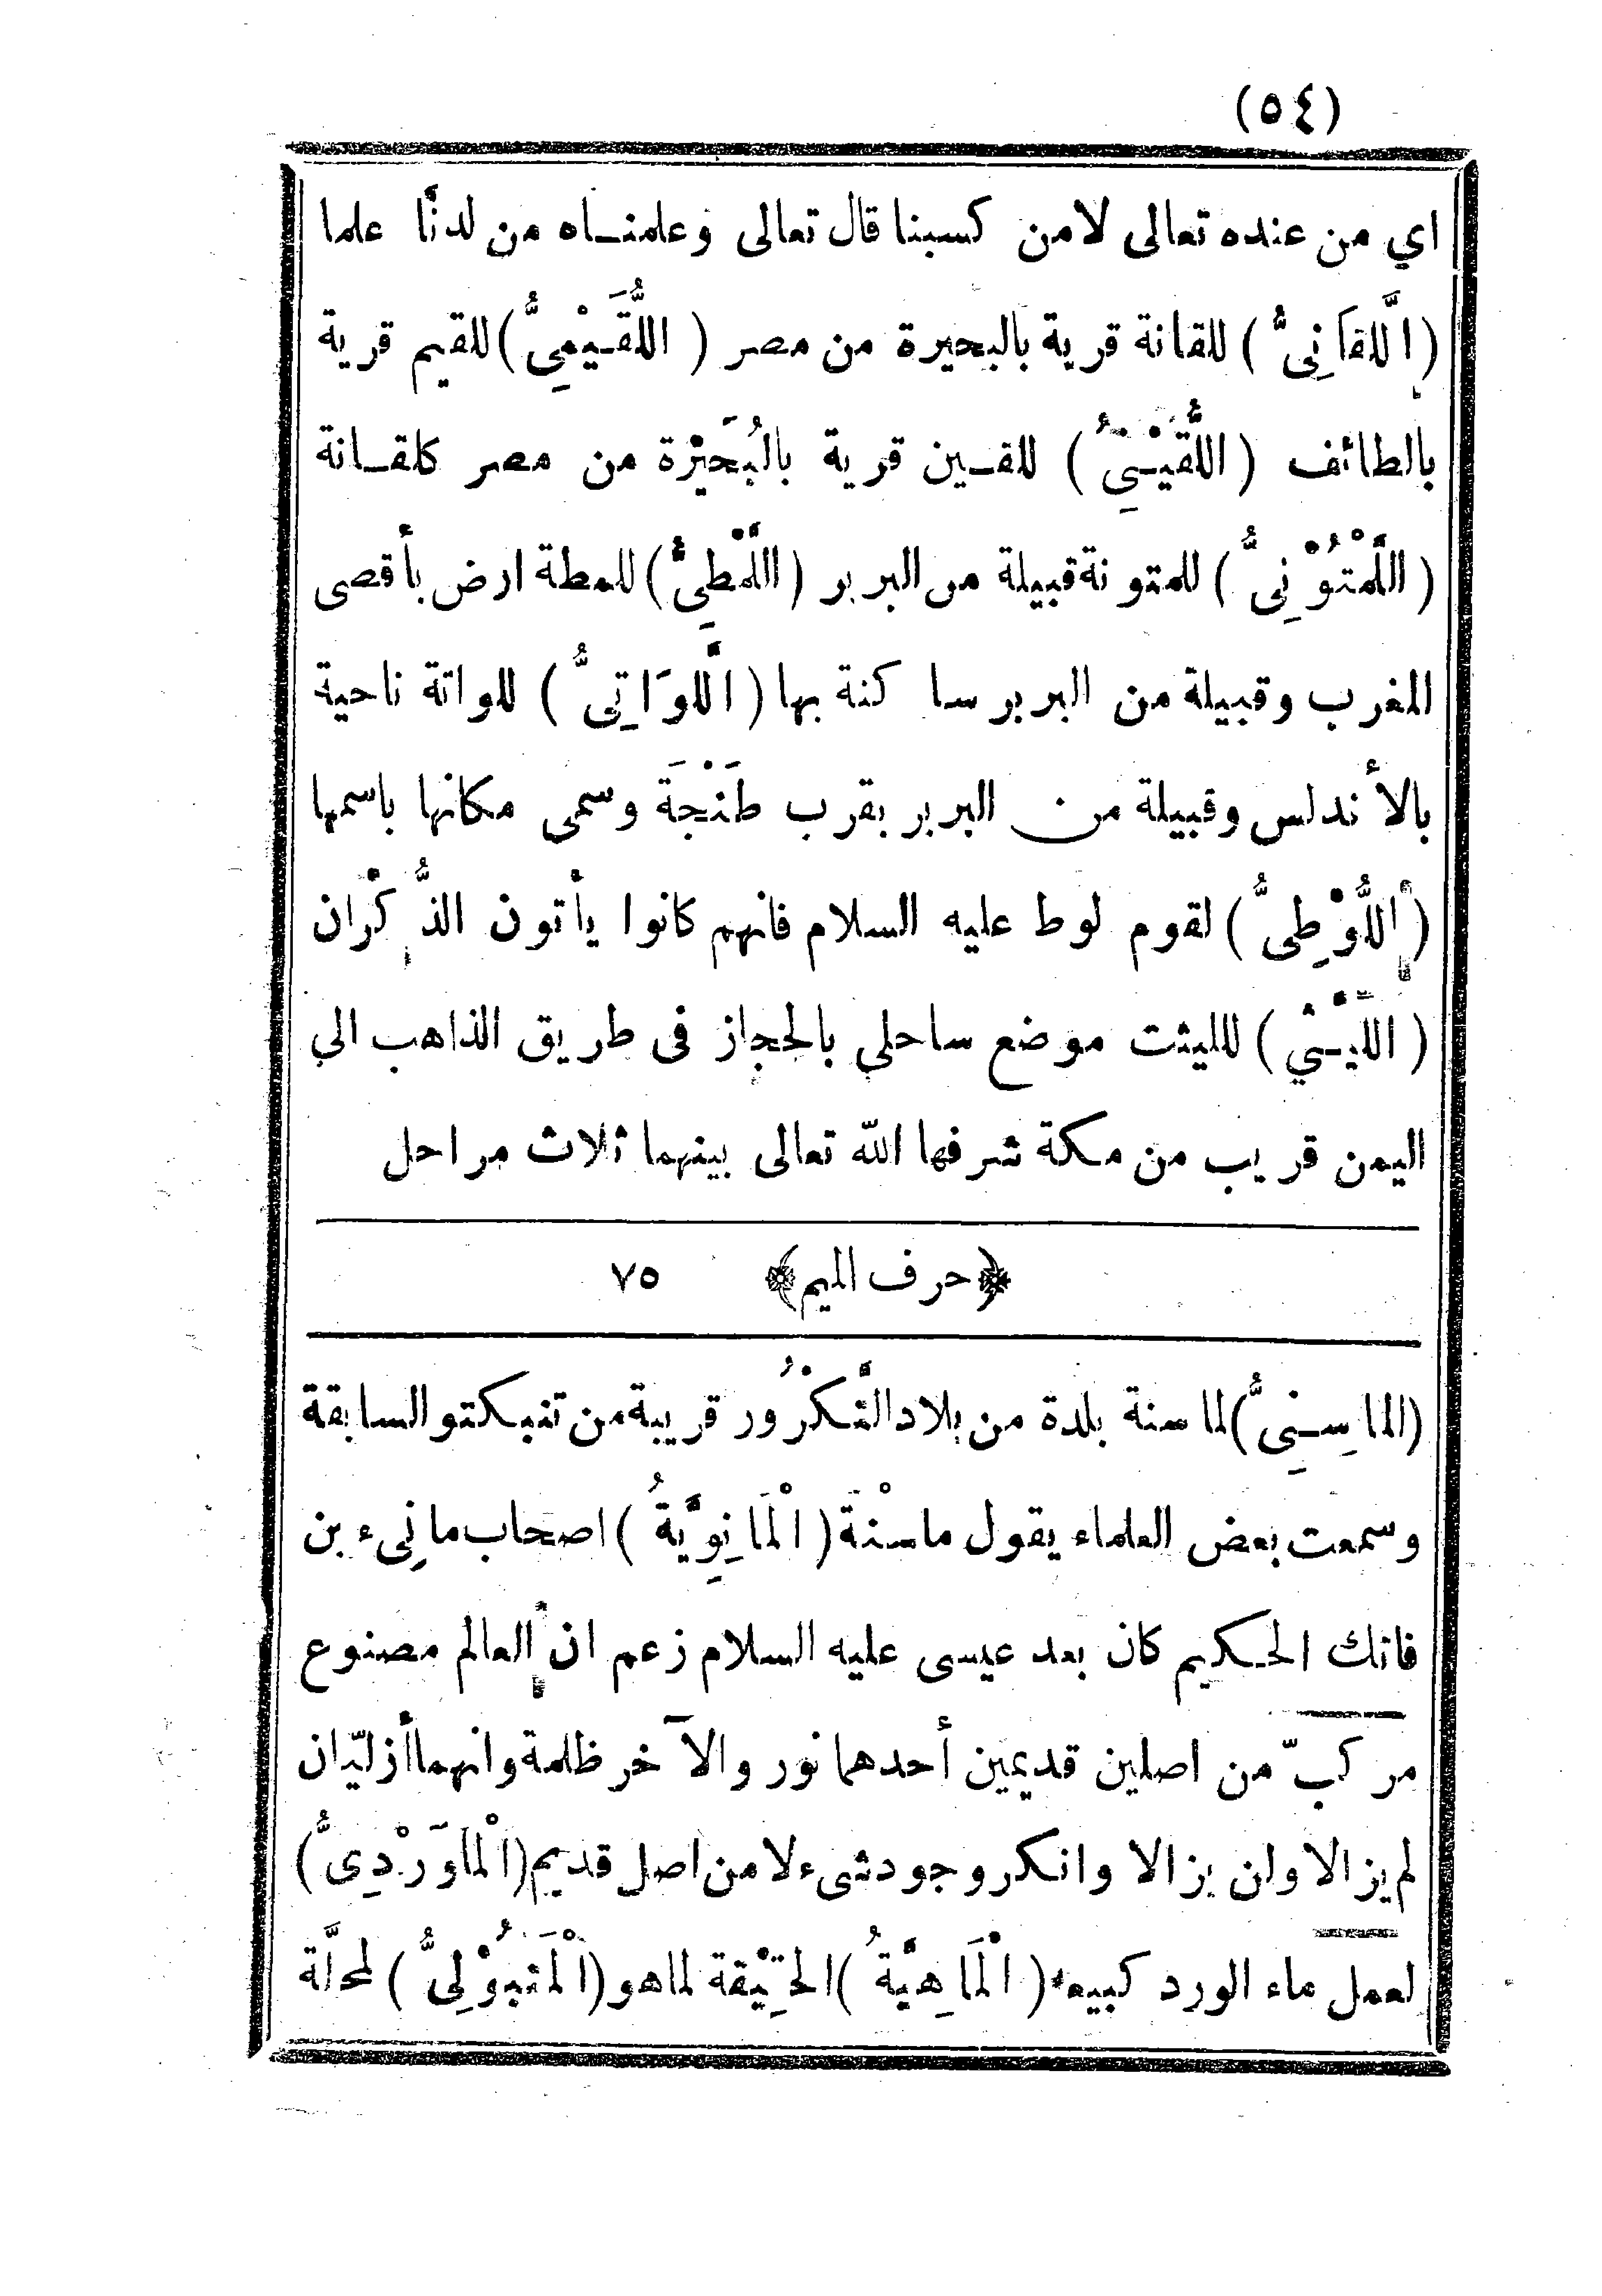 (٥٤)
اي من عنده تعالى لامن كسبنا قال تعالى وعلمنـاه من لدنّا علما
(اللَّقاَنِىُّ) للقانة قرية بالبحيرة من مصر (اللُّقَـيْمِىُّ) للقيم قرية
بالطائف (اللُّقَيْـنِىُّ) للقـين قرية بالبُحَيْرة من مصر كلقـانة
(اللَّمْتُوْنِىُّ) للمتونة قبيلة من البربر (اللَّمْطِىُّ) للمطة ارض بأقصى
المغرب وقبيلة من البربر ساكنة بها (اللَّوَاتِىُّ) للواتة ناحية
بالأندلس وقبيلة من البربر بقرب طَنْجَة وسمى مكانها باسمها
(اللُّوْطِىُّ) لقوم لوط عليه السلام فانهم كانوا يأتون الذُّكْران
(اللَّيْـثي) لليثت موضع ساحلي بالحجاز فى طريق الذاهب الي
اليمن قريب من مكة شرفها الله تعالى بينهما ثلاث مراحل
﴿حرف الميم﴾ ٧٥
(الماسِـنِىُّ) لماسنة بلدة من بلاد التَّكْرُور قريبة من تنبكتو السابقة
وسمعت بعض العلماء يقول ماسْنَة (الْمَانِوِيَّةُ) اصحاب مانِىء بن
فاتك الحـكيم كان بعد عيسى عليه السلام زعم ان العالم مصنوع
مركبّ من اصلين قديمين أحدهما نور والآخر ظلمة وانهما أزليّان
لم يزالا ولن يزالا وانكر وجود شىء لا من اصل قديم (الْماَوَرْدِىُّ)
لعمل ماء الورد كبيعه (الْمَاهِيَّةُ) الحَقِيْقة لماهو (الْمَتبُوْلِىُّ) لمحلَّة